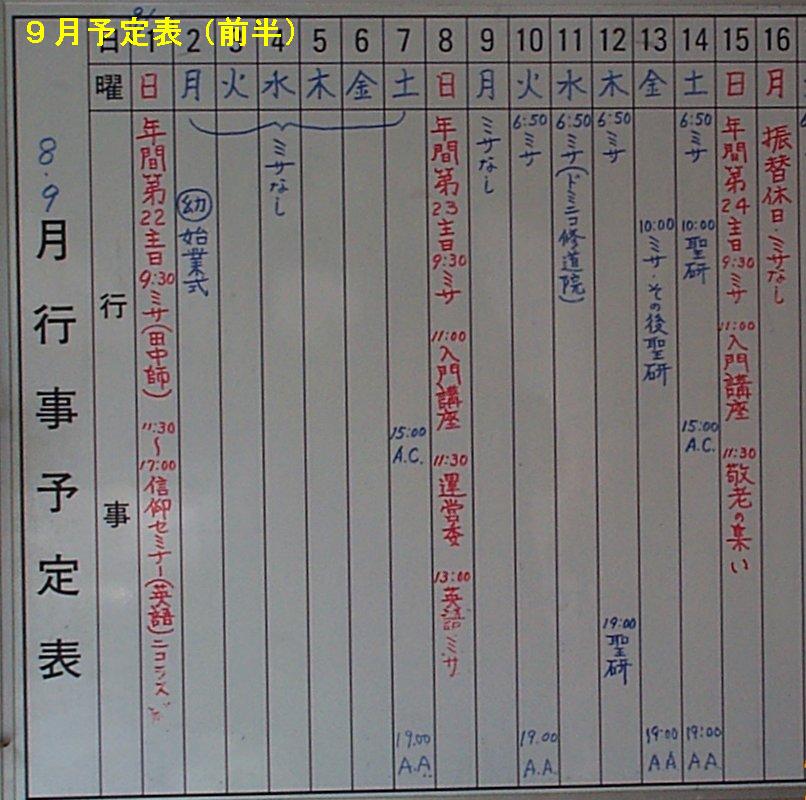 9月予定表（前半）
8・9
月行事予定表
日 1 2 3 4 5 6 7 8 9 10 11 12 13 14 15 16
曜 日 月 火 水 木 金 土 日 月 火 水 木 金 土 日 月
行事
年間第22主日 9:30ミサ(田中師) 11:30〜17:00信仰セミナー(英語)
㊙幼 始業式
ミサなし
15:00 A.C. 19:00 A.A.
年間第23主日 9:30ミサ 11:00入門講座 11:30運営委 13:00英語ミサ
ミサなし
6:50ミサ 19:00 A.A.
6:50ミサ(ドミニコ修道院)
6:50ミサ 19:00聖研
10:00ミサ・その後聖研 19:00 AA
6:50ミサ 10:00聖研 15:00 A.C. 19:00 AA
年間第24主日 9:30ミサ 11:00入門講座 11:30敬老の集い
振替休日・ミサなし